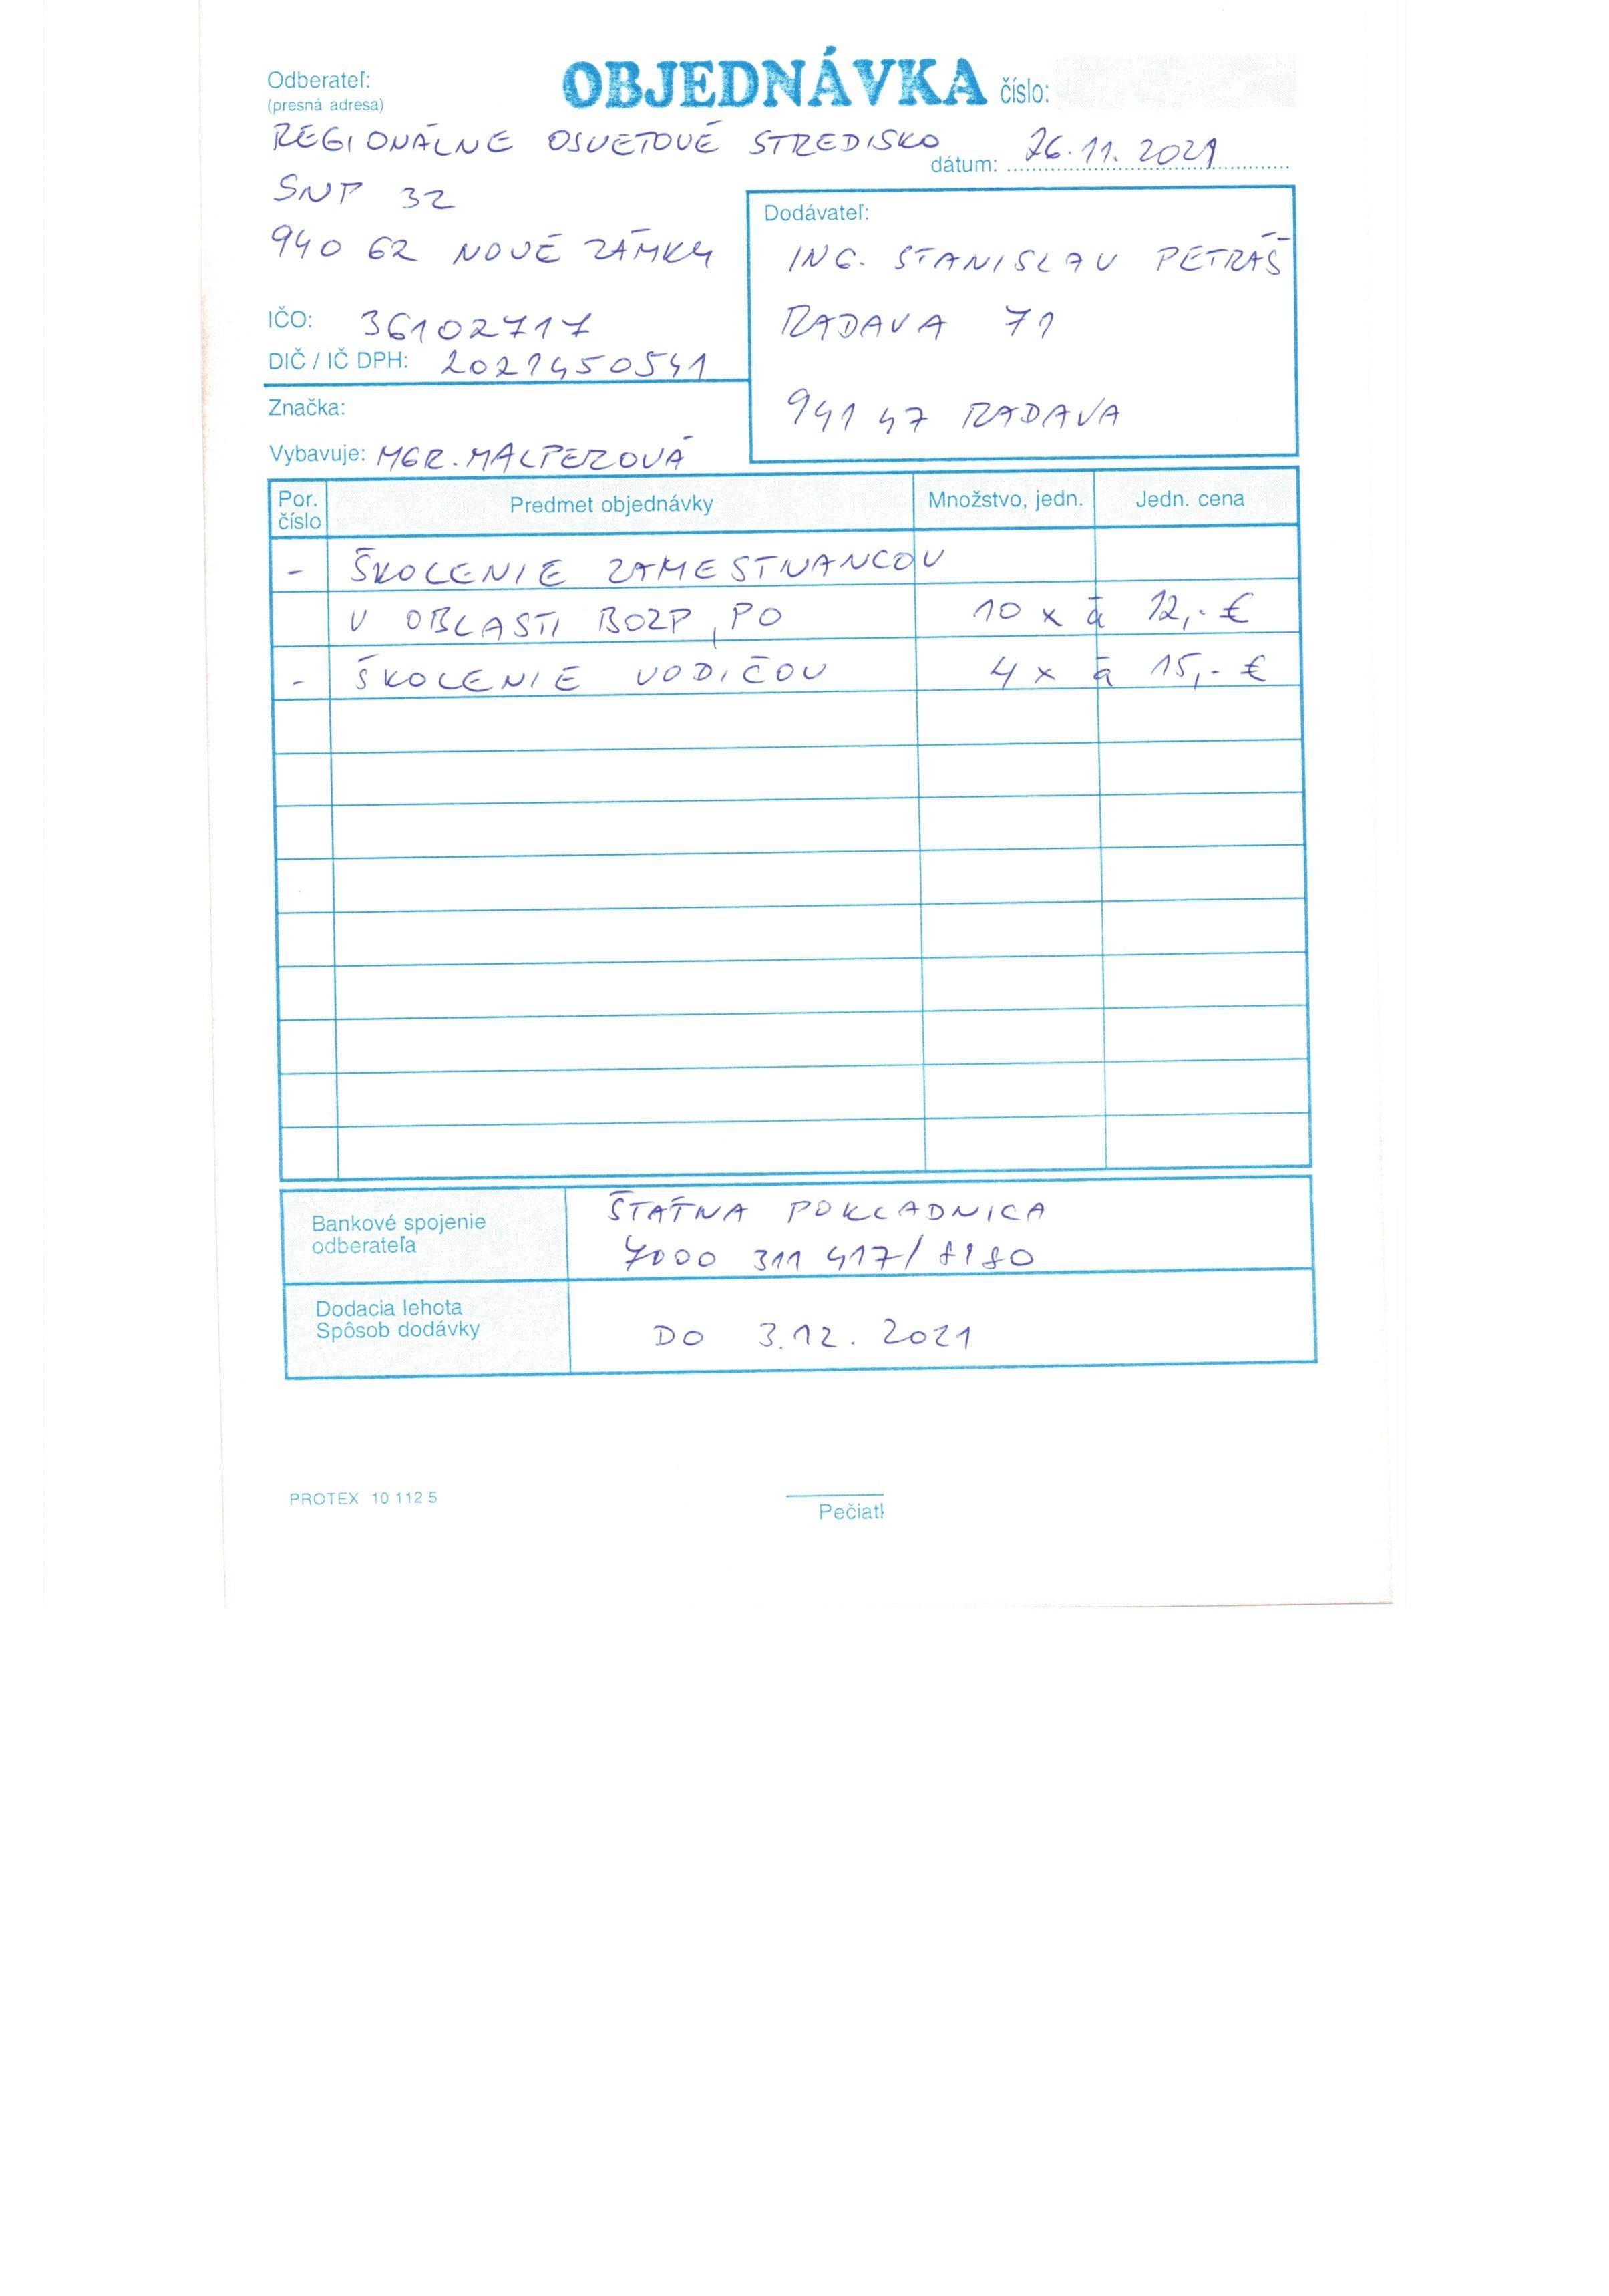 Odberateľ:
(presná adresa)
OBJEDNÁVKA číslo:
REGIONÁLNE OSVETOVÉ STREDISKO
dátum: 26.11.2021
SNP 32
940 62 NOVÉ ZÁMKY
IČO: 36102717
DIČ / IČ DPH: 2021450541
Značka:
Vybavuje: MGR. MALPEROVÁ
Dodávateľ:
ING. STANISLAV PETRÁŠ
RADAVA 71
941 47 RADAVA
Por. číslo Predmet objednávky Množstvo, jedn. Jedn. cena
- ŠKOLENIE ZAMESTNANCOV
V OBLASTI BOZP, PO 10 x à 12,- €
- ŠKOLENIE VODIČOV 4 x à 15,- €
Bankové spojenie
odberateľa
ŠTÁTNA POKLADNICA
7000 311 417/8180
Dodacia lehota
Spôsob dodávky
DO 3.12.2021
PROTEX 10 112 5
Pečiatk